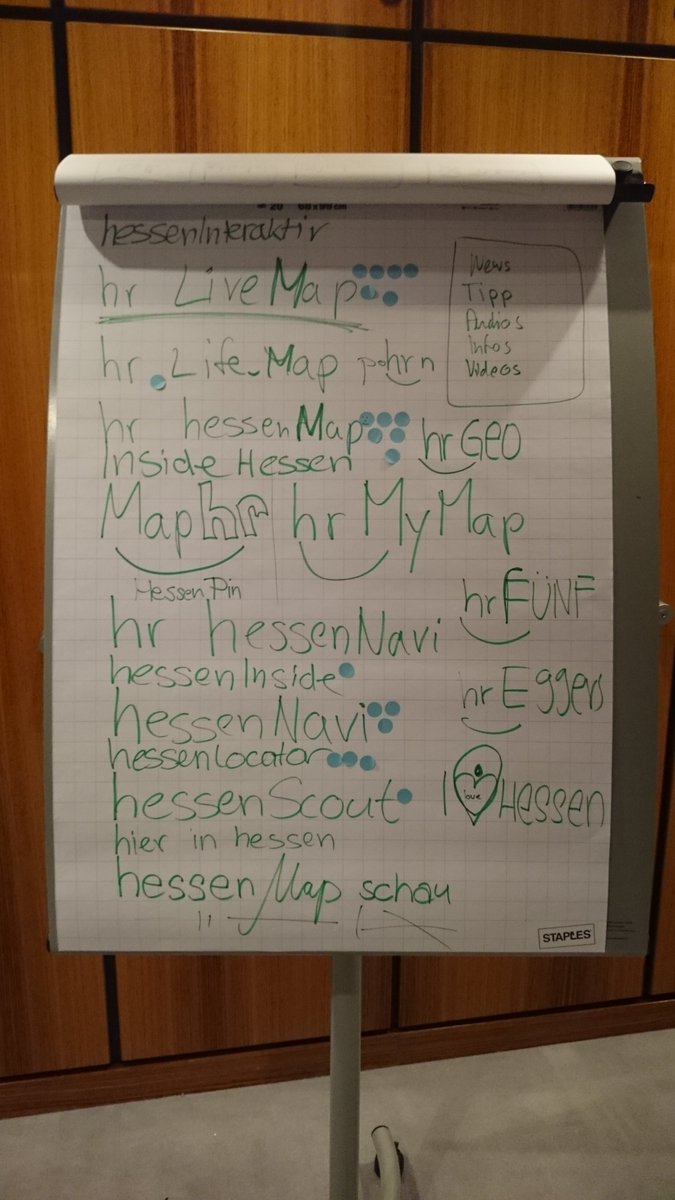 68 x 99 cm
hessenInteraktiv
hr LiveMap
News
Tipp
Audios
Infos
Videos
hr Life-Map
pohrn
hr hessenMap
hrGEO
Inside Hessen
Maphr
hr MyMap
HessenPin
hrFÜNF
hr hessenNavi
hessenInside
hrEggers
hessenNavi
hessenLocator
hessenScout
I love Hessen
hier in hessen
hessenMap schau
STAPLES